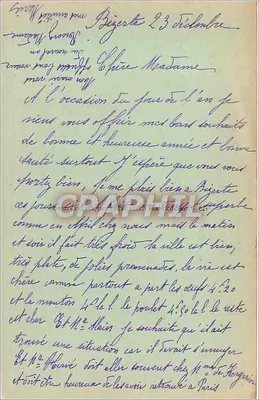 Bizerte 23 décembre
Chère Madame
A l'occasion du jour de l'an je
viens vous offrir mes bons souhaits
de bonne et heureuse année et bonne
santé surtout J'espère que vous vous
portez bien, je me plais bien a Bizerte
ces jours
comme en avril chez nous mais le matin
et soir il fait très froid la ville est bien,
très plate, de jolies promenades, la vie est
chère comme partout a part les oeufs 4f.20
et le mouton le poulet 4f.50 le k. le reste
est cher Et Mr Alain je souhaite qu'il ait
trouvé une situation car il devait s'ennuyer
Et Mr Hervé doit aller souvent chez Mme de
et doit être heureux de les avoir retrouvé a Paris
CPAPHIL